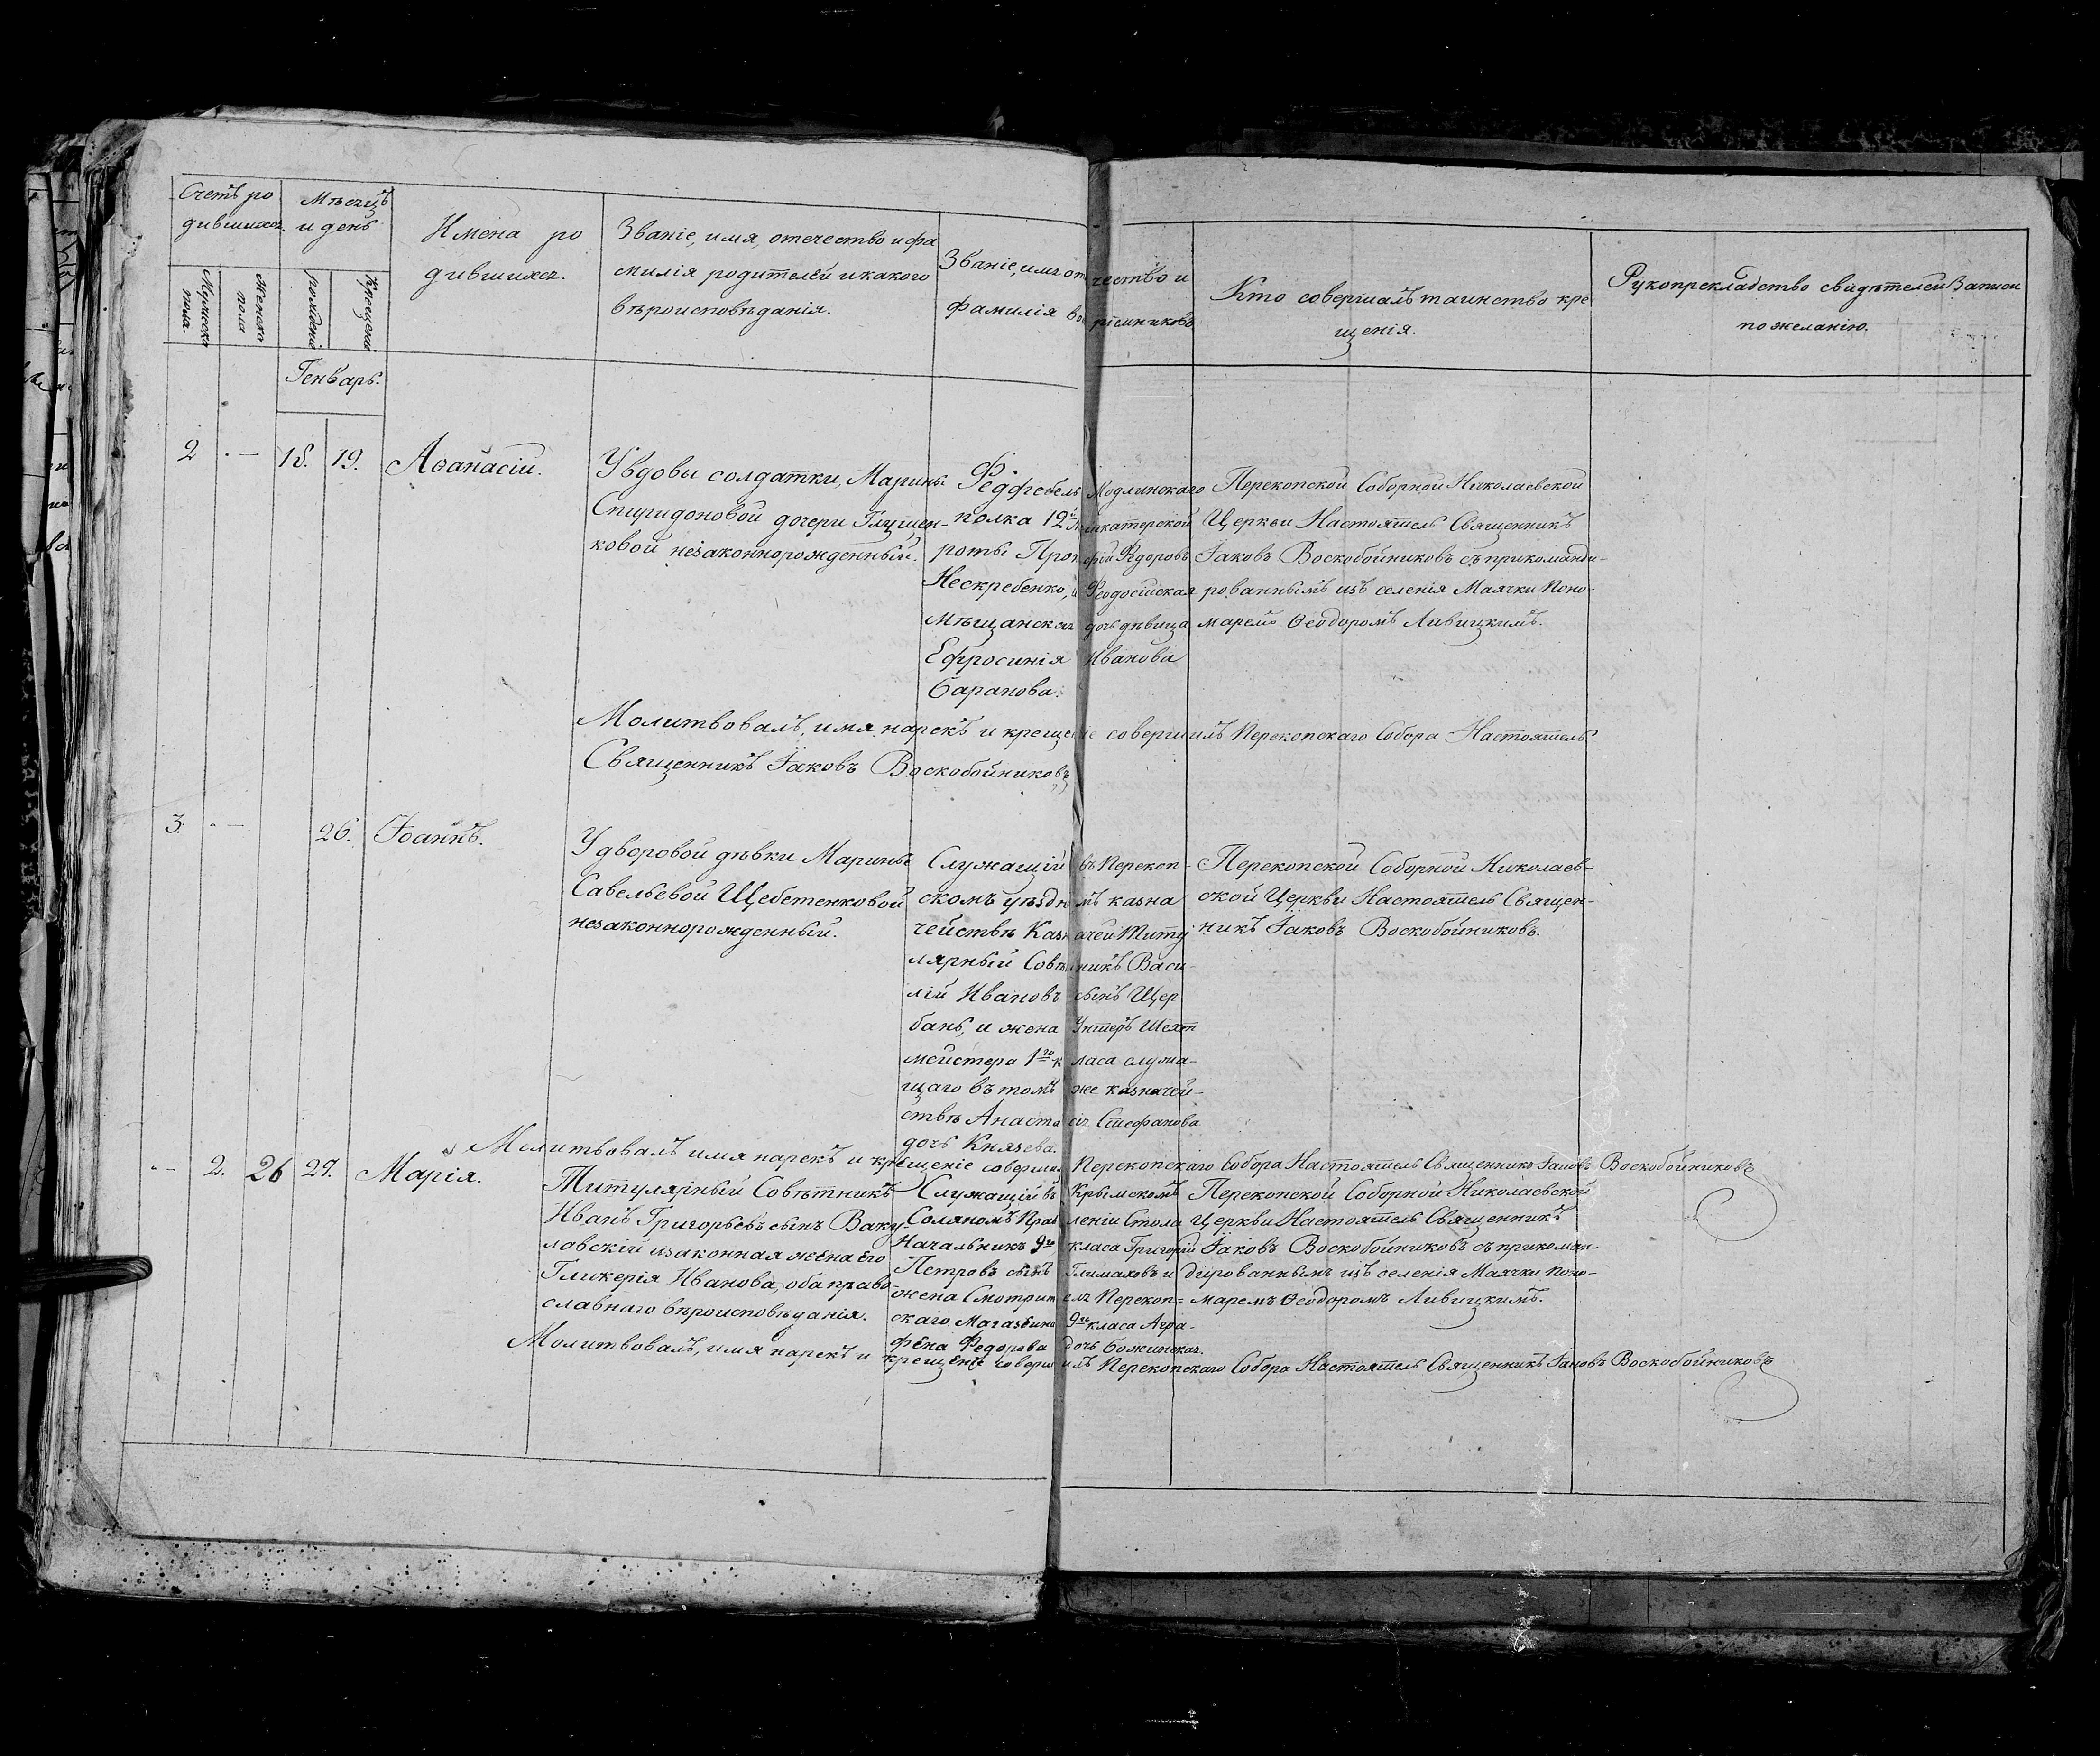 Счетъ ро
дившихся.
Мужеска
пола.
Женска
пола
Мѣсяцъ
и день
рожденія
Крещенія
Имена ро
дившихся.
Званіе, имя, отечество и фа
милія родителей и какого
вѣроисповѣданія.
Званіе, имя от чество и
фамилія во пріемниковъ
Кто совершалъ таинство кре
щенія.
Рукоприкладство свидѣтелей Записи
по желанію.
Генварь.
2 - 18. 19. Аѳанасій.
У вдовы солдатки, Марины
Спиридоновой дочери Глущен-
ковой незаконнорожденный.
Федфебель Модлинскаго
полка 12й
роты Прокофій Федоровъ
Нескребенко, и Феодосійская
мѣщанская дочь дѣвица
Ефросинія Иванова
Баранова.
Перекопской Соборной Николаевской
Церкви Настоятель Священникъ
Іаковъ Воскобойниковъ съ прикоманди-
рованнымъ изъ селенія Маячки Поно-
маремъ Ѳеодоромъ Ливицкимъ.
Молитвовалъ, имя нарекъ и крещеніе совершилъ Перекопскаго Собора Настоятель
Священникъ Іаковъ Воскобойниковъ
3. - 26. Іоаннъ.
У дворовой дѣвки Марины
Савельевой Щебетенковой
незаконнорожденный.
Служащій въ Перекоп-
скомъ уѣздномъ казна
чействѣ Казначей Титу
лярный Совѣтникъ Васи-
лій Ивановъ сынъ Щер
бань, и жена Унтеръ Шихт
мейстера 1го класа служа-
щаго въ томъ же казначей-
ствѣ Анастасія Стефанова
дочь Князева.
Перекопской Соборной Николаев-
ской Церкви Настоятель Священ-
никъ Іаковъ Воскобойниковъ.
Молитвовалъ имя нарекъ и крещеніе соверши Перекопскаго Собора Настоятель Священникъ Іаковъ Воскобойниковъ
- 2. 26 29. Марія.
Титулярный Совѣтникъ
Иванъ Григорьевъ сынъ Ваку-
ловскій и законная жена его
Гликерія Иванова, оба право-
славнаго вѣроисповѣданія.
Служащій въ Крымскомъ
Соляномъ Правленіи Стола
Начальникъ 9го класа Григорій
Петровъ сынъ Глимаховъ и
жена Смотрителя Перекоп=
скаго Магазейна 9го класа Агра-
фена Федорова дочь Божинская.
Перекопской Соборной Николаевской
Церкви Настоятель Священникъ
Іаковъ Воскобойниковъ съ прикоман-
дированнымъ изъ селенія Маячки Поно-
маремъ Ѳеодоромъ Ливицкимъ.
Молитвовалъ, имя нарекъ и крещеніе совершилъ Перекопскаго Собора Настоятель Священникъ Іаковъ Воскобойниковъ